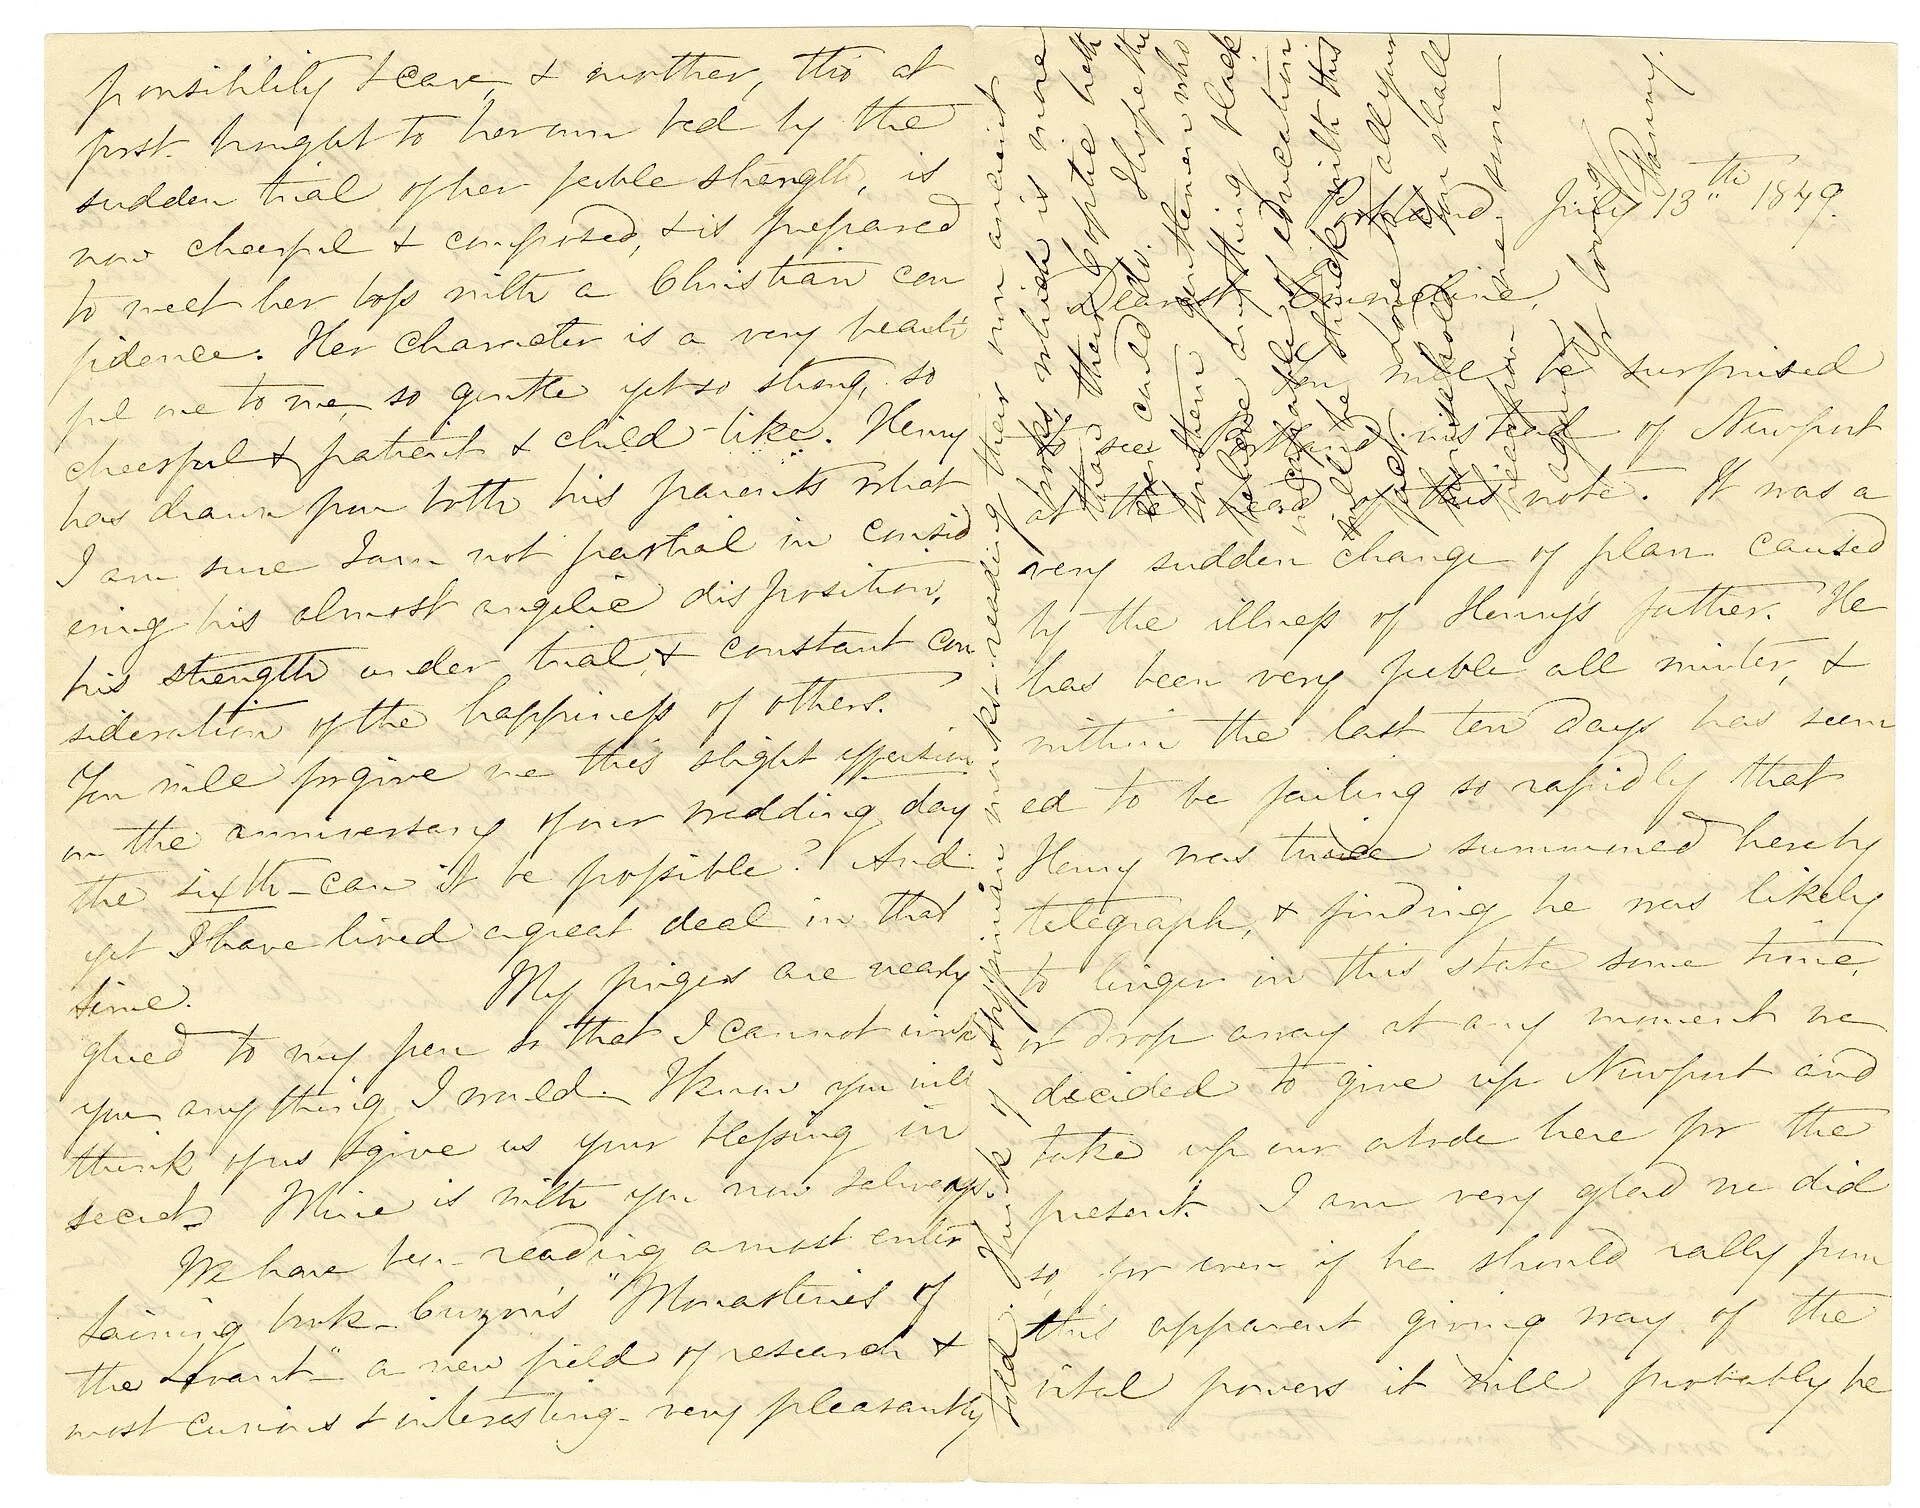 Portland. July 13th 1849.
Dearest Emmeline,
You will be surprised
to see Portland instead of Newport
at the head of this note. It was a
very sudden change of plan caused
by the illness of Henry's father. He
has been very feeble all winter, &
within the last ten days has seem
ed to be failing so rapidly that
Henry was twice summoned here by
telegraph, & finding he was likely
to linger in this state some time,
or drop away at any moment we
decided to give up Newport and
take up our abode here for the
present. I am very glad we did
so, for even if he should rally from
this apparent giving way of the
vital powers it will probably be
ponsibility & care, & mother, tho' at
first brought to her own bed by the
sudden trial of her feeble strength, is
now cheerful & composed, & is prepared
to meet her loss with a Christian con
fidence. Her character is a very beauti
ful one to me, so gentle yet so strong, so
cheerful & patient & child-like. Henry
has drawn from both his parents what
I am sure I am not partial in consid
ering his almost angelic disposition,
his strength under trial, & constant con
sideration of the happiness of others.
You will forgive me this slight effusion
on the anniversary of our wedding day
the sixth—can it be possible? And
yet I have lived a great deal in that
time. My fingers are nearly
glued to my pen so that I cannot wish
you anything I would. I know you will
think of us & give us your blessing in
secret. Mine is with you now & always.
We have been reading a most enter
taining book—Curzon's "Monasteries of
the Levant"—a new field of research &
most curious & interesting—very pleasantly
told. Think of Abyssinian monks reading their own ancient
books, which is more
than their Coptic
could do. I hope the
gentlemen who
believe anything black
incapable of education
will be struck with this
fact. more all your
household
from
again
Yr loving
Fanny.